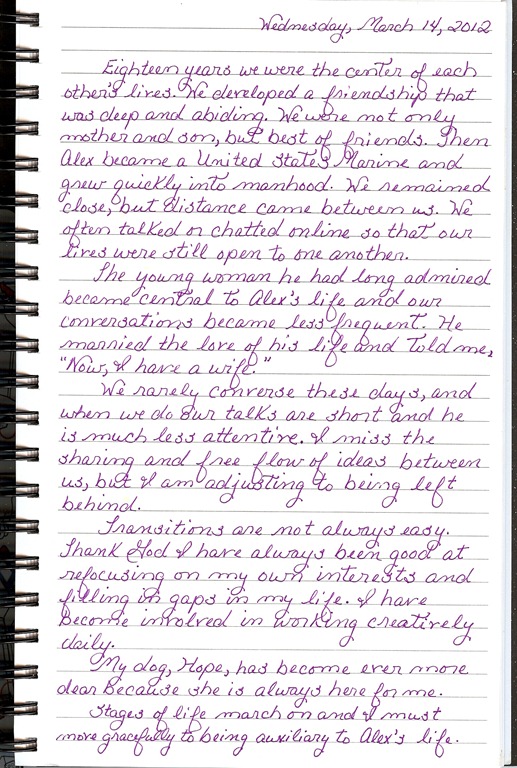 Wednesday, March 14, 2012
Eighteen years we were the center of each
other's lives. We developed a friendship that
was deep and abiding. We were not only
mother and son, but best of friends. Then
Alex became a United States Marine and
grew quickly into manhood. We remained
close, but distance came between us. We
often talked or chatted online so that our
lives were still open to one another.
The young woman he had long admired
became central to Alex's life and our
conversations became less frequent. He
married the love of his life and told me,
"Now, I have a wife."
We rarely converse these days, and
when we do our talks are short and he
is much less attentive. I miss the
sharing and free flow of ideas between
us, but I am adjusting to being left
behind.
Transitions are not always easy.
Thank God I have always been good at
refocusing on my own interests and
filling in gaps in my life. I have
become involved in working creatively
daily.
My dog, Hope, has become ever more
dear because she is always here for me.
Stages of life march on and I must
move gracefully to being auxiliary to Alex's life.